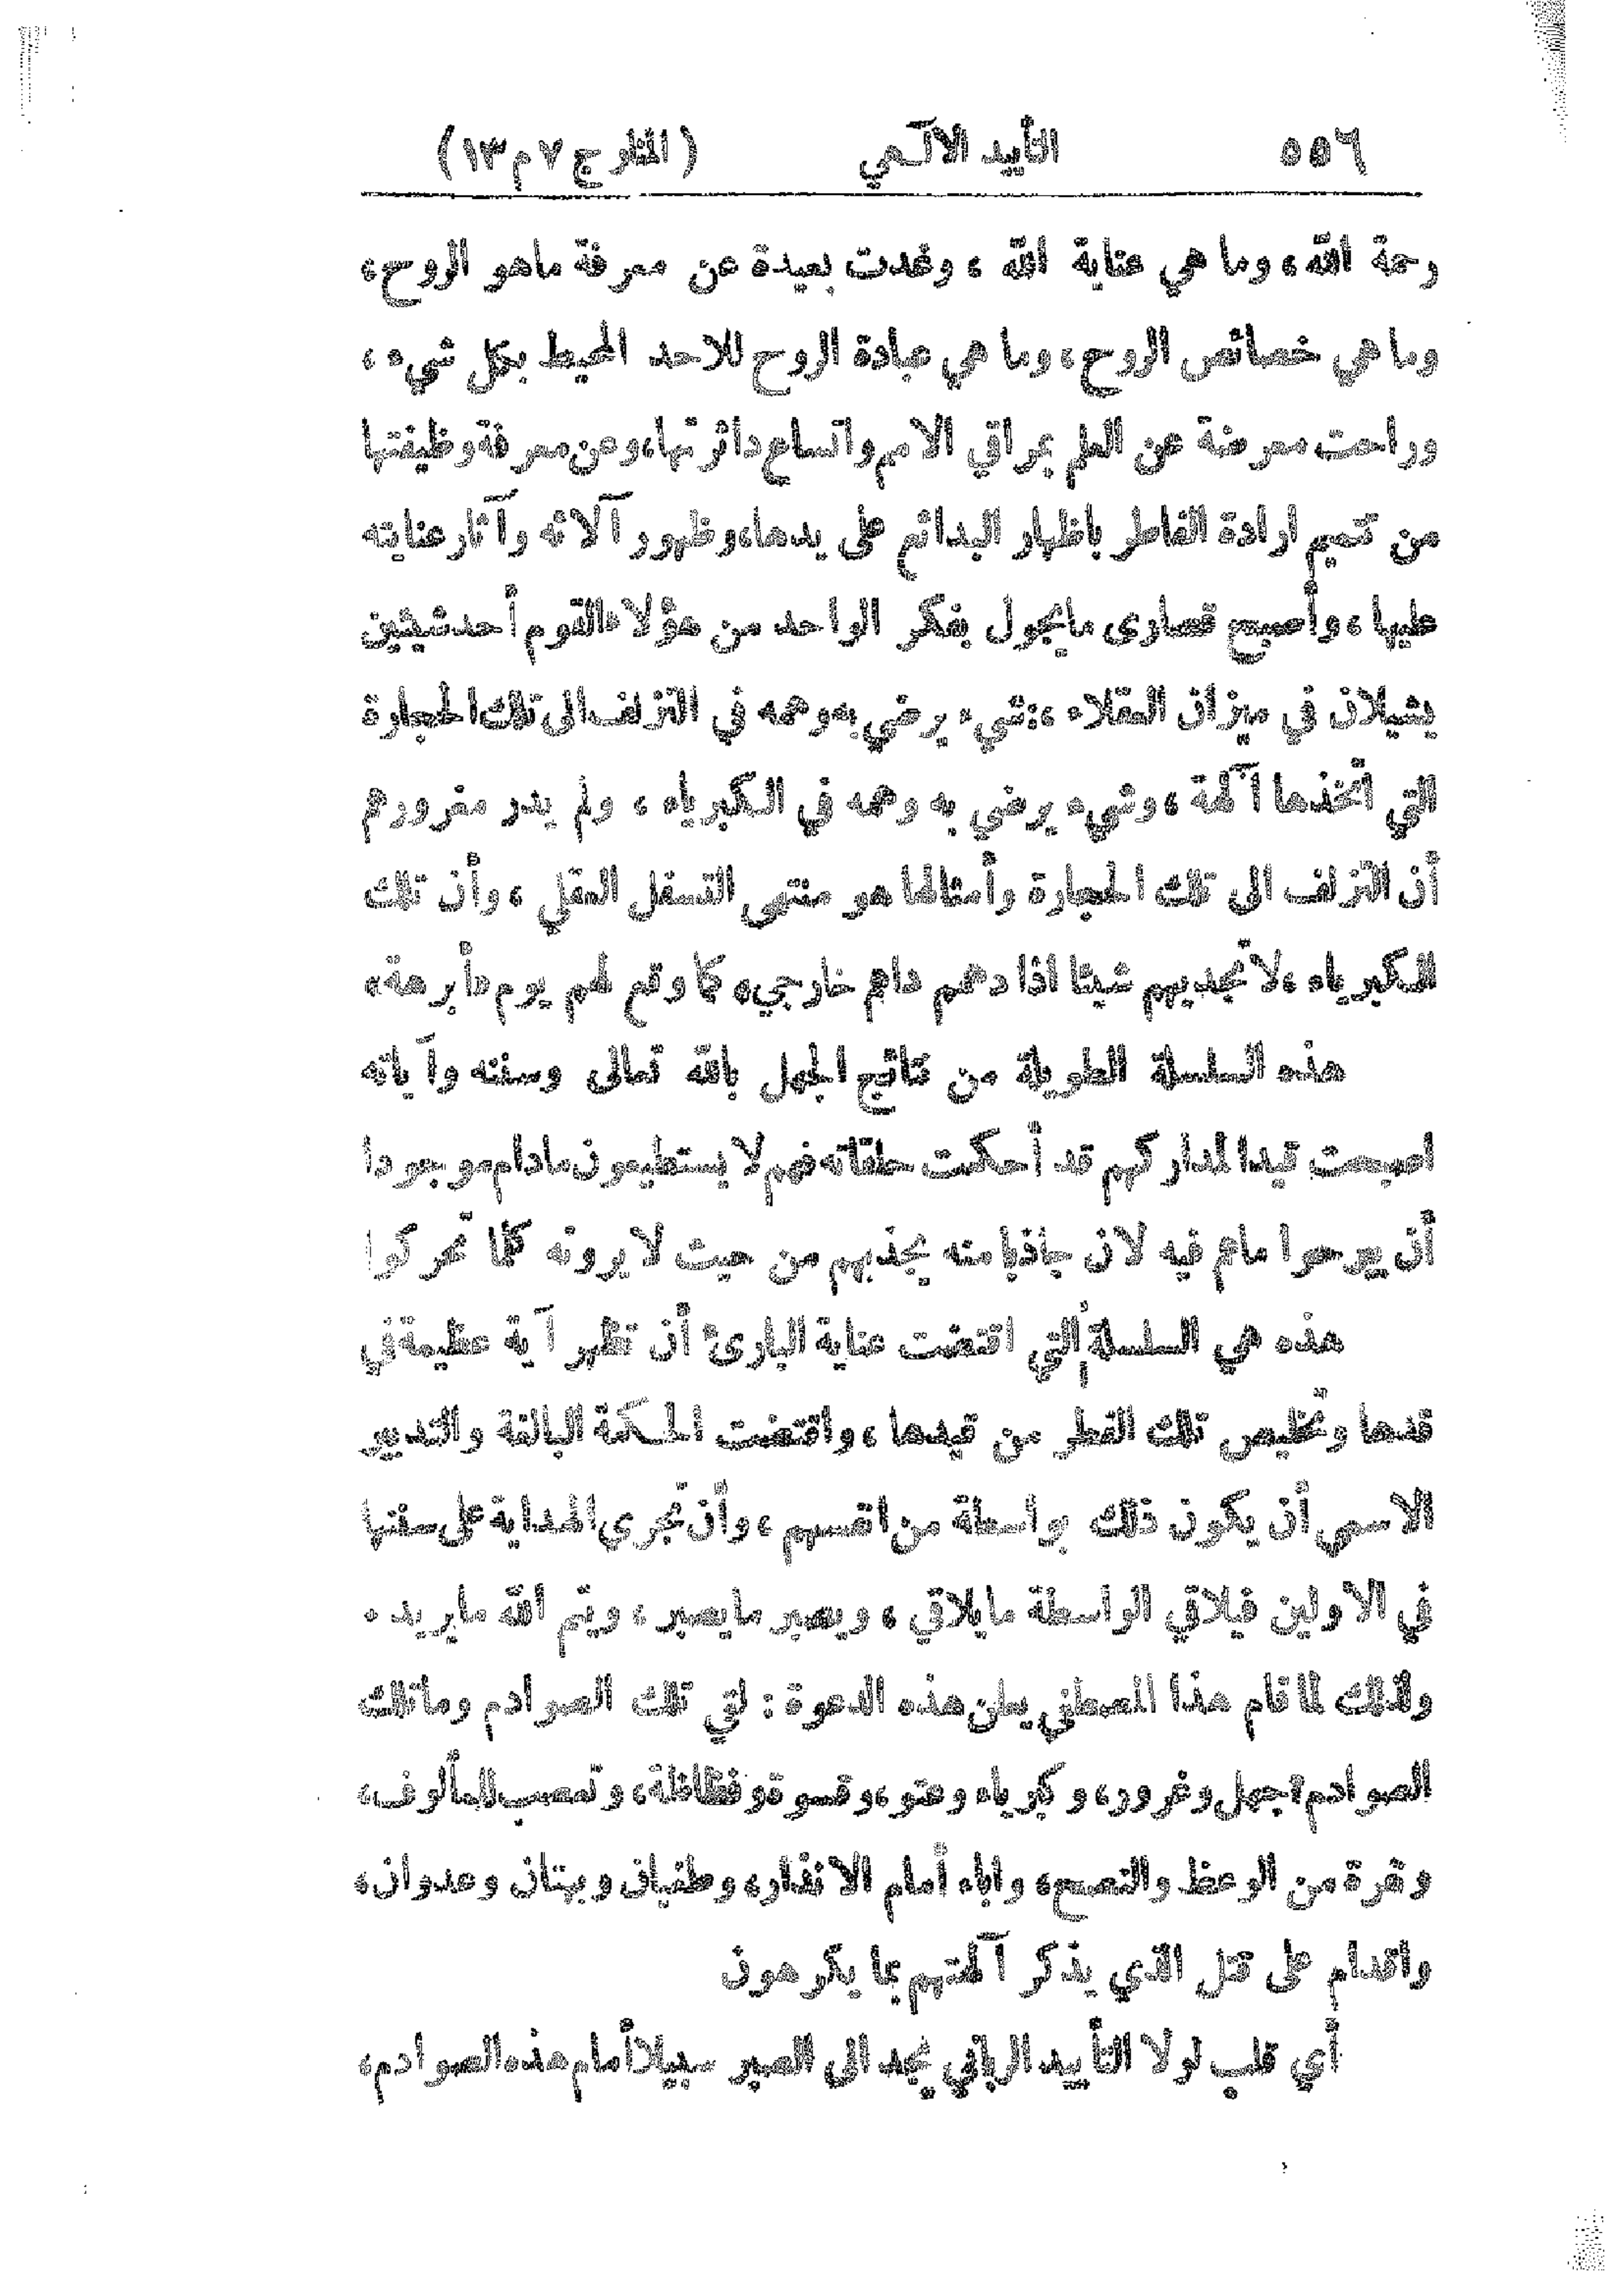 ٥٥٦ التأييد الآلهي (المنار ج ٧ م ١٣)
رحمة الله، وما هي عناية الله، وغدت بعيدة عن معرفة ماهو الروح،
وما هي خصائص الروح، وما هي عبادة الروح للاحد المحيط بكل شيء،
وراحت معرضة عن العلم بمراقي الامم واتساع دائرتها، وعن معرفة وظيفتها
من تتميم ارادة الفاطر باظهار البدائع على يدها، وظهور آلائه وآثار عنايته
عليها، وأصبح قصارى مايجول بفكر الواحد من هؤلاء القوم أحد شيئين
يشيلان في ميزان العقلاء: شيء يرضي به وهمه في التزلف الى تلك الحجارة
التي اتخذها آلهة، وشيء يرضي به وهمه في الكبرياء، ولم يدر مغرورهم
أن التزلف الى تلك الحجارة وأمثالها هو منتهى التسفل العقلي، وأن تلك
الكبرياء، لا تجديهم شيئا اذا دهمهم داهم خارجي، كما وقع لهم يوم «أبرهة»
هذه السلسلة الطويلة من نتائج الجهل بالله تعالى وسننه وآياته
اصبحت قيدا لمداركهم قد أحكمت حلقاته فهم لا يستطيعون مادام موجودا
أن يبرحوا ماهم فيه لان جاذبا منه يجذبهم من حيث لا يرونه كلما تحركوا
هذه هي السلسلة التي اقتضت عناية البارئ أن تظهر آية عظيمة في
قدها وتخليص تلك الفطر من قيدها، واقتضت الحكمة البالغة والتدبير
الاسمى أن يكون ذلك بواسطة من انفسهم، وأن تجري الهداية على سننها
في الأولين فيلاقي الواسطة مايلاقي، ويصبر مايصبر، ويتم الله مايريد.
ولذلك لما قام هذا المصطفى يعلن هذه الدعوة: لقي تلك الصوادم وماتلك
الصوادم؟ جهل وغرور، وكبرياء وعتو، وقسوة وفظاظة، وتعصب للمألوف،
ونفرة من الوعظ والنصح، واباء أمام الانذار، وطغيان وبهتان وعدوان،
واقدام على قتل الذي يذكر آلهتهم بما يكرهون
أي قلب لولا التأييد الرباني يجد الى الصبر سبيلا أمام هذه الصوادم،